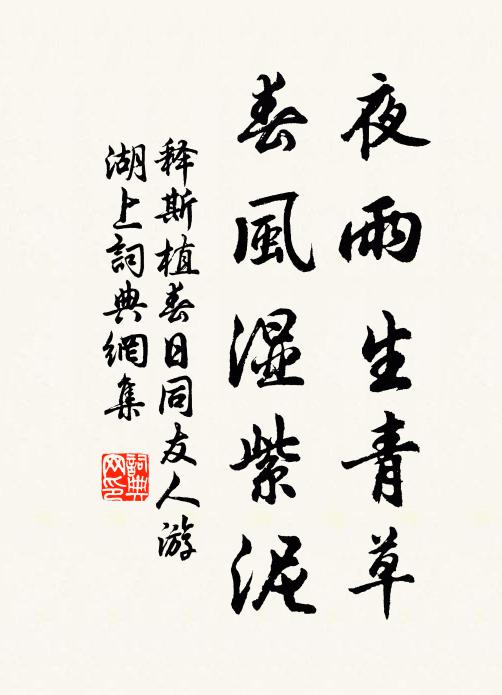 夜雨生青草
春風湿紫泥
释斯植春日同友人游
湖上詞典網集
詞典网印